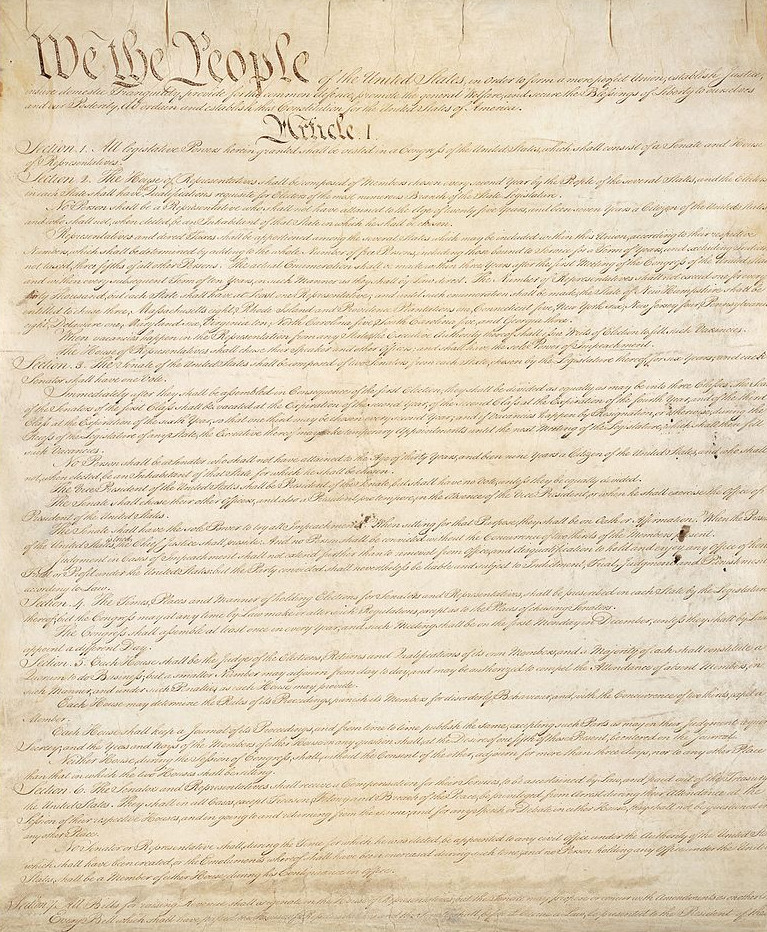 We the People of the United States, in Order to form a more perfect Union, establish Justice,
insure domestic Tranquility, provide for the common defence, promote the general Welfare, and secure the Blessings of Liberty to ourselves
and our Posterity, do ordain and establish this Constitution for the United States of America.
Article. I.
Section. 1. All legislative Powers herein granted shall be vested in a Congress of the United States, which shall consist of a Senate and House
of Representatives.
Section. 2. The House of Representatives shall be composed of Members chosen every second Year by the People of the several States, and the Electors
in each State shall have the Qualifications requisite for Electors of the most numerous Branch of the State Legislature.
No Person shall be a Representative who shall not have attained to the Age of twenty five Years, and been seven Years a Citizen of the United States,
and who shall not, when elected, be an Inhabitant of that State in which he shall be chosen.
Representatives and direct Taxes shall be apportioned among the several States which may be included within this Union, according to their respective
Numbers, which shall be determined by adding to the whole Number of free Persons, including those bound to Service for a Term of Years, and excluding Indians
not taxed, three fifths of all other Persons. The actual Enumeration shall be made within three Years after the first Meeting of the Congress of the United States,
and within every subsequent Term of ten Years, in such Manner as they shall by Law direct. The Number of Representatives shall not exceed one for every
thirty Thousand, but each State shall have at Least one Representative; and until such enumeration shall be made, the State of New Hampshire shall be
entitled to chuse three, Massachusetts eight, Rhode Island and Providence Plantations one, Connecticut five, New York six, New Jersey four, Pennsylvania
eight, Delaware one, Maryland six, Virginia ten, North Carolina five, South Carolina five, and Georgia three.
When vacancies happen in the Representation from any State, the Executive Authority thereof shall issue Writs of Election to fill such Vacancies.
The House of Representatives shall chuse their Speaker and other Officers; and shall have the sole Power of Impeachment.
Section. 3. The Senate of the United States shall be composed of two Senators from each State, chosen by the Legislature thereof, for six Years; and each
Senator shall have one Vote.
Immediately after they shall be assembled in Consequence of the first Election, they shall be divided as equally as may be into three Classes. The Seats
of the Senators of the first Class shall be vacated at the Expiration of the second Year, of the second Class at the Expiration of the fourth Year, and of the third
Class at the Expiration of the sixth Year, so that one third may be chosen every second Year; and if Vacancies happen by Resignation, or otherwise, during the
Recess of the Legislature of any State, the Executive thereof may make temporary Appointments until the next Meeting of the Legislature, which shall then fill
such Vacancies.
No Person shall be a Senator who shall not have attained to the Age of thirty Years, and been nine Years a Citizen of the United States, and who shall
not, when elected, be an Inhabitant of that State for which he shall be chosen.
The Vice President of the United States shall be President of the Senate, but shall have no Vote, unless they be equally divided.
The Senate shall chuse their other Officers, and also a President pro tempore, in the Absence of the Vice President, or when he shall exercise the Office of
President of the United States.
The Senate shall have the sole Power to try all Impeachments. When sitting for that Purpose, they shall be on Oath or Affirmation. When the President
of the United States is tried, the Chief Justice shall preside: And no Person shall be convicted without the Concurrence of two thirds of the Members present.
Judgment in Cases of Impeachment shall not extend further than to removal from Office, and disqualification to hold and enjoy any Office of honor,
Trust or Profit under the United States: but the Party convicted shall nevertheless be liable and subject to Indictment, Trial, Judgment and Punishment,
according to Law.
Section. 4. The Times, Places and Manner of holding Elections for Senators and Representatives, shall be prescribed in each State by the Legislature
thereof; but the Congress may at any time by Law make or alter such Regulations, except as to the Places of chusing Senators.
The Congress shall assemble at least once in every Year, and such Meeting shall be on the first Monday in December, unless they shall by Law
appoint a different Day.
Section. 5. Each House shall be the Judge of the Elections, Returns and Qualifications of its own Members, and a Majority of each shall constitute a
Quorum to do Business; but a smaller Number may adjourn from day to day, and may be authorized to compel the Attendance of absent Members, in
such Manner, and under such Penalties as each House may provide.
Each House may determine the Rules of its Proceedings, punish its Members for disorderly Behaviour, and, with the Concurrence of two thirds, expel a
Member.
Each House shall keep a Journal of its Proceedings, and from time to time publish the same, excepting such Parts as may in their Judgment require
Secrecy; and the Yeas and Nays of the Members of either House on any question shall, at the Desire of one fifth of those Present, be entered on the Journal.
Neither House, during the Session of Congress, shall, without the Consent of the other, adjourn for more than three days, nor to any other Place
than that in which the two Houses shall be sitting.
Section. 6. The Senators and Representatives shall receive a Compensation for their Services, to be ascertained by Law, and paid out of the Treasury
of the United States. They shall in all Cases, except Treason, Felony and Breach of the Peace, be privileged from Arrest during their Attendance at the
Session of their respective Houses, and in going to and returning from the same; and for any Speech or Debate in either House, they shall not be questioned in
any other Place.
No Senator or Representative shall, during the Time for which he was elected, be appointed to any civil Office under the Authority of the United States,
which shall have been created, or the Emoluments whereof shall have been encreased during such time; and no Person holding any Office under the United
States, shall be a Member of either House during his Continuance in Office.
Section. 7. All Bills for raising Revenue shall originate in the House of Representatives; but the Senate may propose or concur with Amendments as on other Bills.
Every Bill which shall have passed the House of Representatives and the Senate, shall, before it become a Law, be presented to the President of the